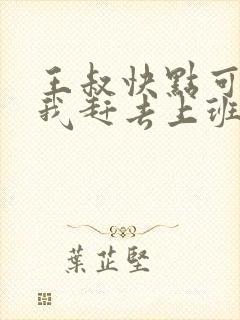 王叔快點可
我赶去上班
葉芷堅